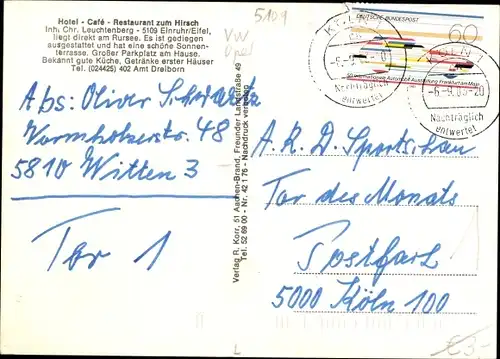 Hotel - Café - Restaurant zum Hirsch
Inh. Chr. Leuchtenberg - 5109 Einruhr/Eifel,
liegt direkt am Rursee. Es ist gediegen
ausgestattet und hat eine schöne Sonnen-
terrasse. Großer Parkplatz am Hause.
Bekannt gute Küche, Getränke erster Häuser
Tel. (024425) 402 Amt Dreiborn
5109
VW
Opel
Abs: Oliver
Wormholzerstr. 48
5810 Witten 3
Tor 1
Verlag R. Korr, 51 Aachen-Brand, Freunder Landstraße 49
Tel. 52 69 00 - Nr. 42 176 - Nachdruck verboten
DEUTSCHE BUNDESPOST
60
Internationale Automobil-Ausstellung Frankfurt am Main
KÖLN 1
Nachträglich
entwertet
KÖLN 1
Nachträglich
entwertet
A. R. D. Sportschau
Tor des Monats
Postfach
5000 Köln 100
€3,-
L